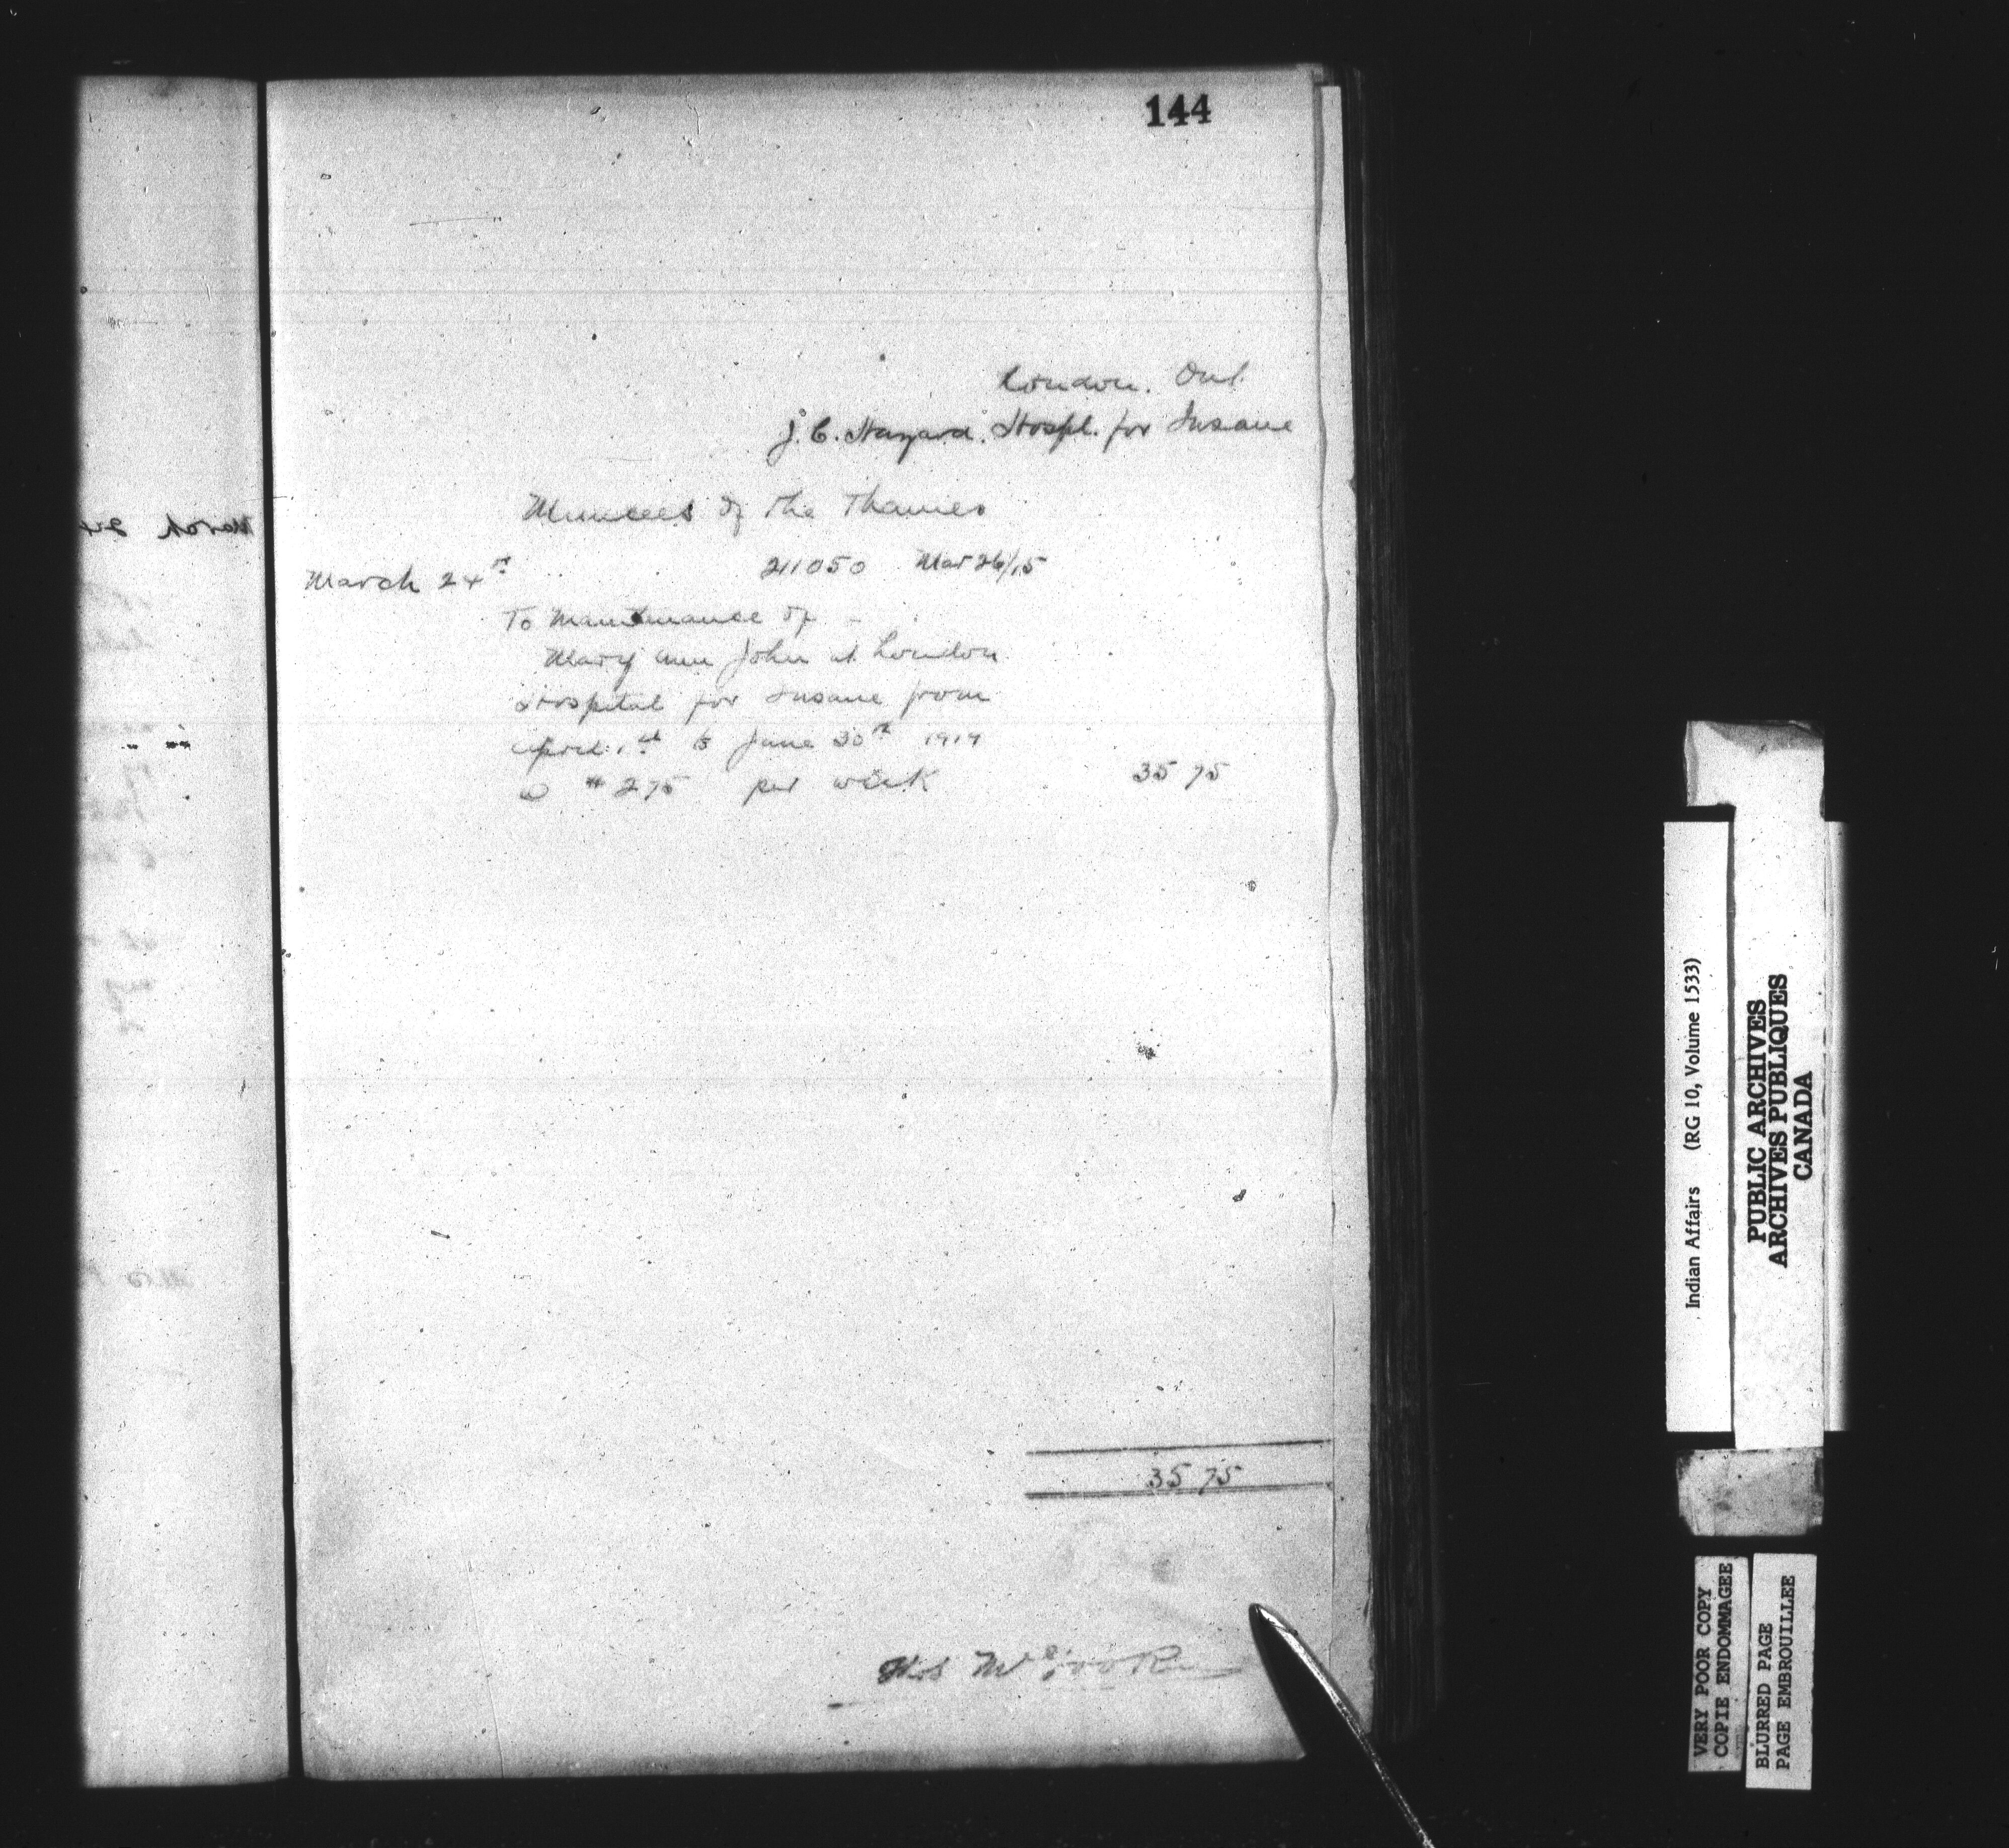 144
London. Ont.
J. C. Hazzard. Hospl. for Insane
Muncees of the Thames
March 24th
211050 Mar 26/15
To Maintenance of
Mary Ann John at London
Hospital for Insane from
April 1st to June 30th 1914
@ $2 75 per week 35 75
35 75
March 24
Indian Affairs (RG 10, Volume 1533)
PUBLIC ARCHIVES
ARCHIVES PUBLIQUES
CANADA
VERY POOR COPY
COPIE ENDOMMAGEE
BLURRED PAGE
PAGE EMBROUILLEE